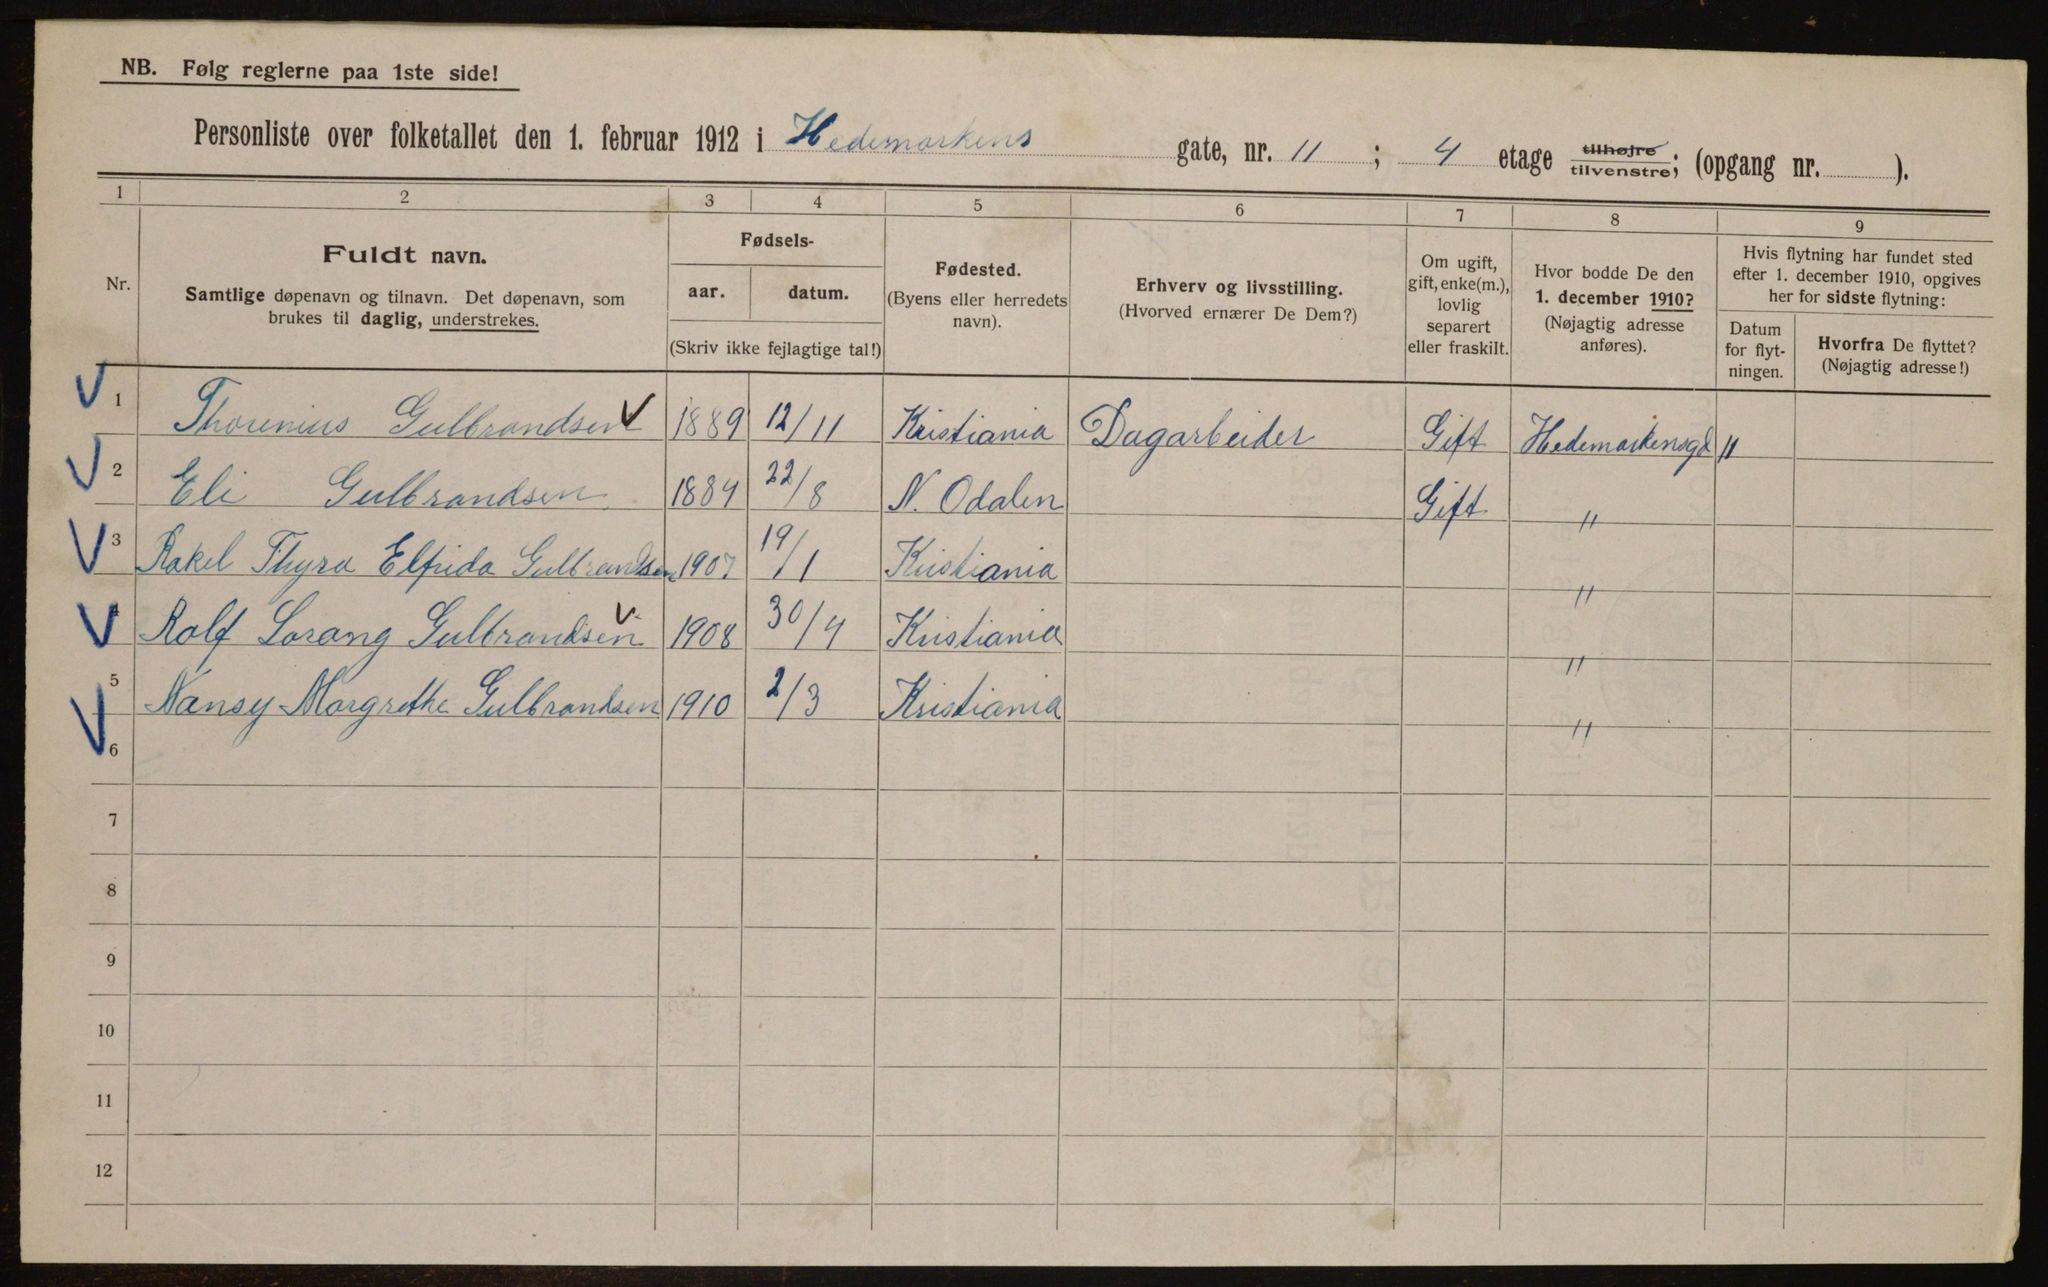 NB. Følg reglerne paa 1ste side!
Personliste over folketallet den 1. februar 1912 i Hedemarkens gate, nr. 11 ; 4 etage tilhøjre/tilvenstre; (opgang nr. ).
1 2 3 4 5 6 7 8 9
Nr.
Fuldt navn.
Samtlige døpenavn og tilnavn. Det døpenavn, som
brukes til daglig, understrekes.
Fødsels-
aar. datum.
(Skriv ikke fejlagtige tal!)
Fødested.
(Byens eller herredets
navn).
Erhverv og livsstilling.
(Hvorved ernærer De Dem?)
Om ugift,
gift, enke(m.),
lovlig
separert
eller fraskilt.
Hvor bodde De den
1. december 1910?
(Nøjagtig adresse
anføres).
Hvis flytning har fundet sted
efter 1. december 1910, opgives
her for sidste flytning:
Datum
for flyt-
ningen.
Hvorfra De flyttet?
(Nøjagtig adresse!)
1 Gulbrandsen 1889 12/11 Kristiania Dagarbeider Gift Hedemarkensgd 11
2 Eli Gulbrandsen 1884 22/8 N. Odalen Gift "
3 Rakel Thyra Elfrida Gulbrandsen 1907 19/1 Kristiania "
4 Rolf Lorang Gulbrandsen 1908 30/4 Kristiania "
5 Nansy Margrethe Gulbrandsen 1910 2/3 Kristiania "
6
7
8
9
10
11
12